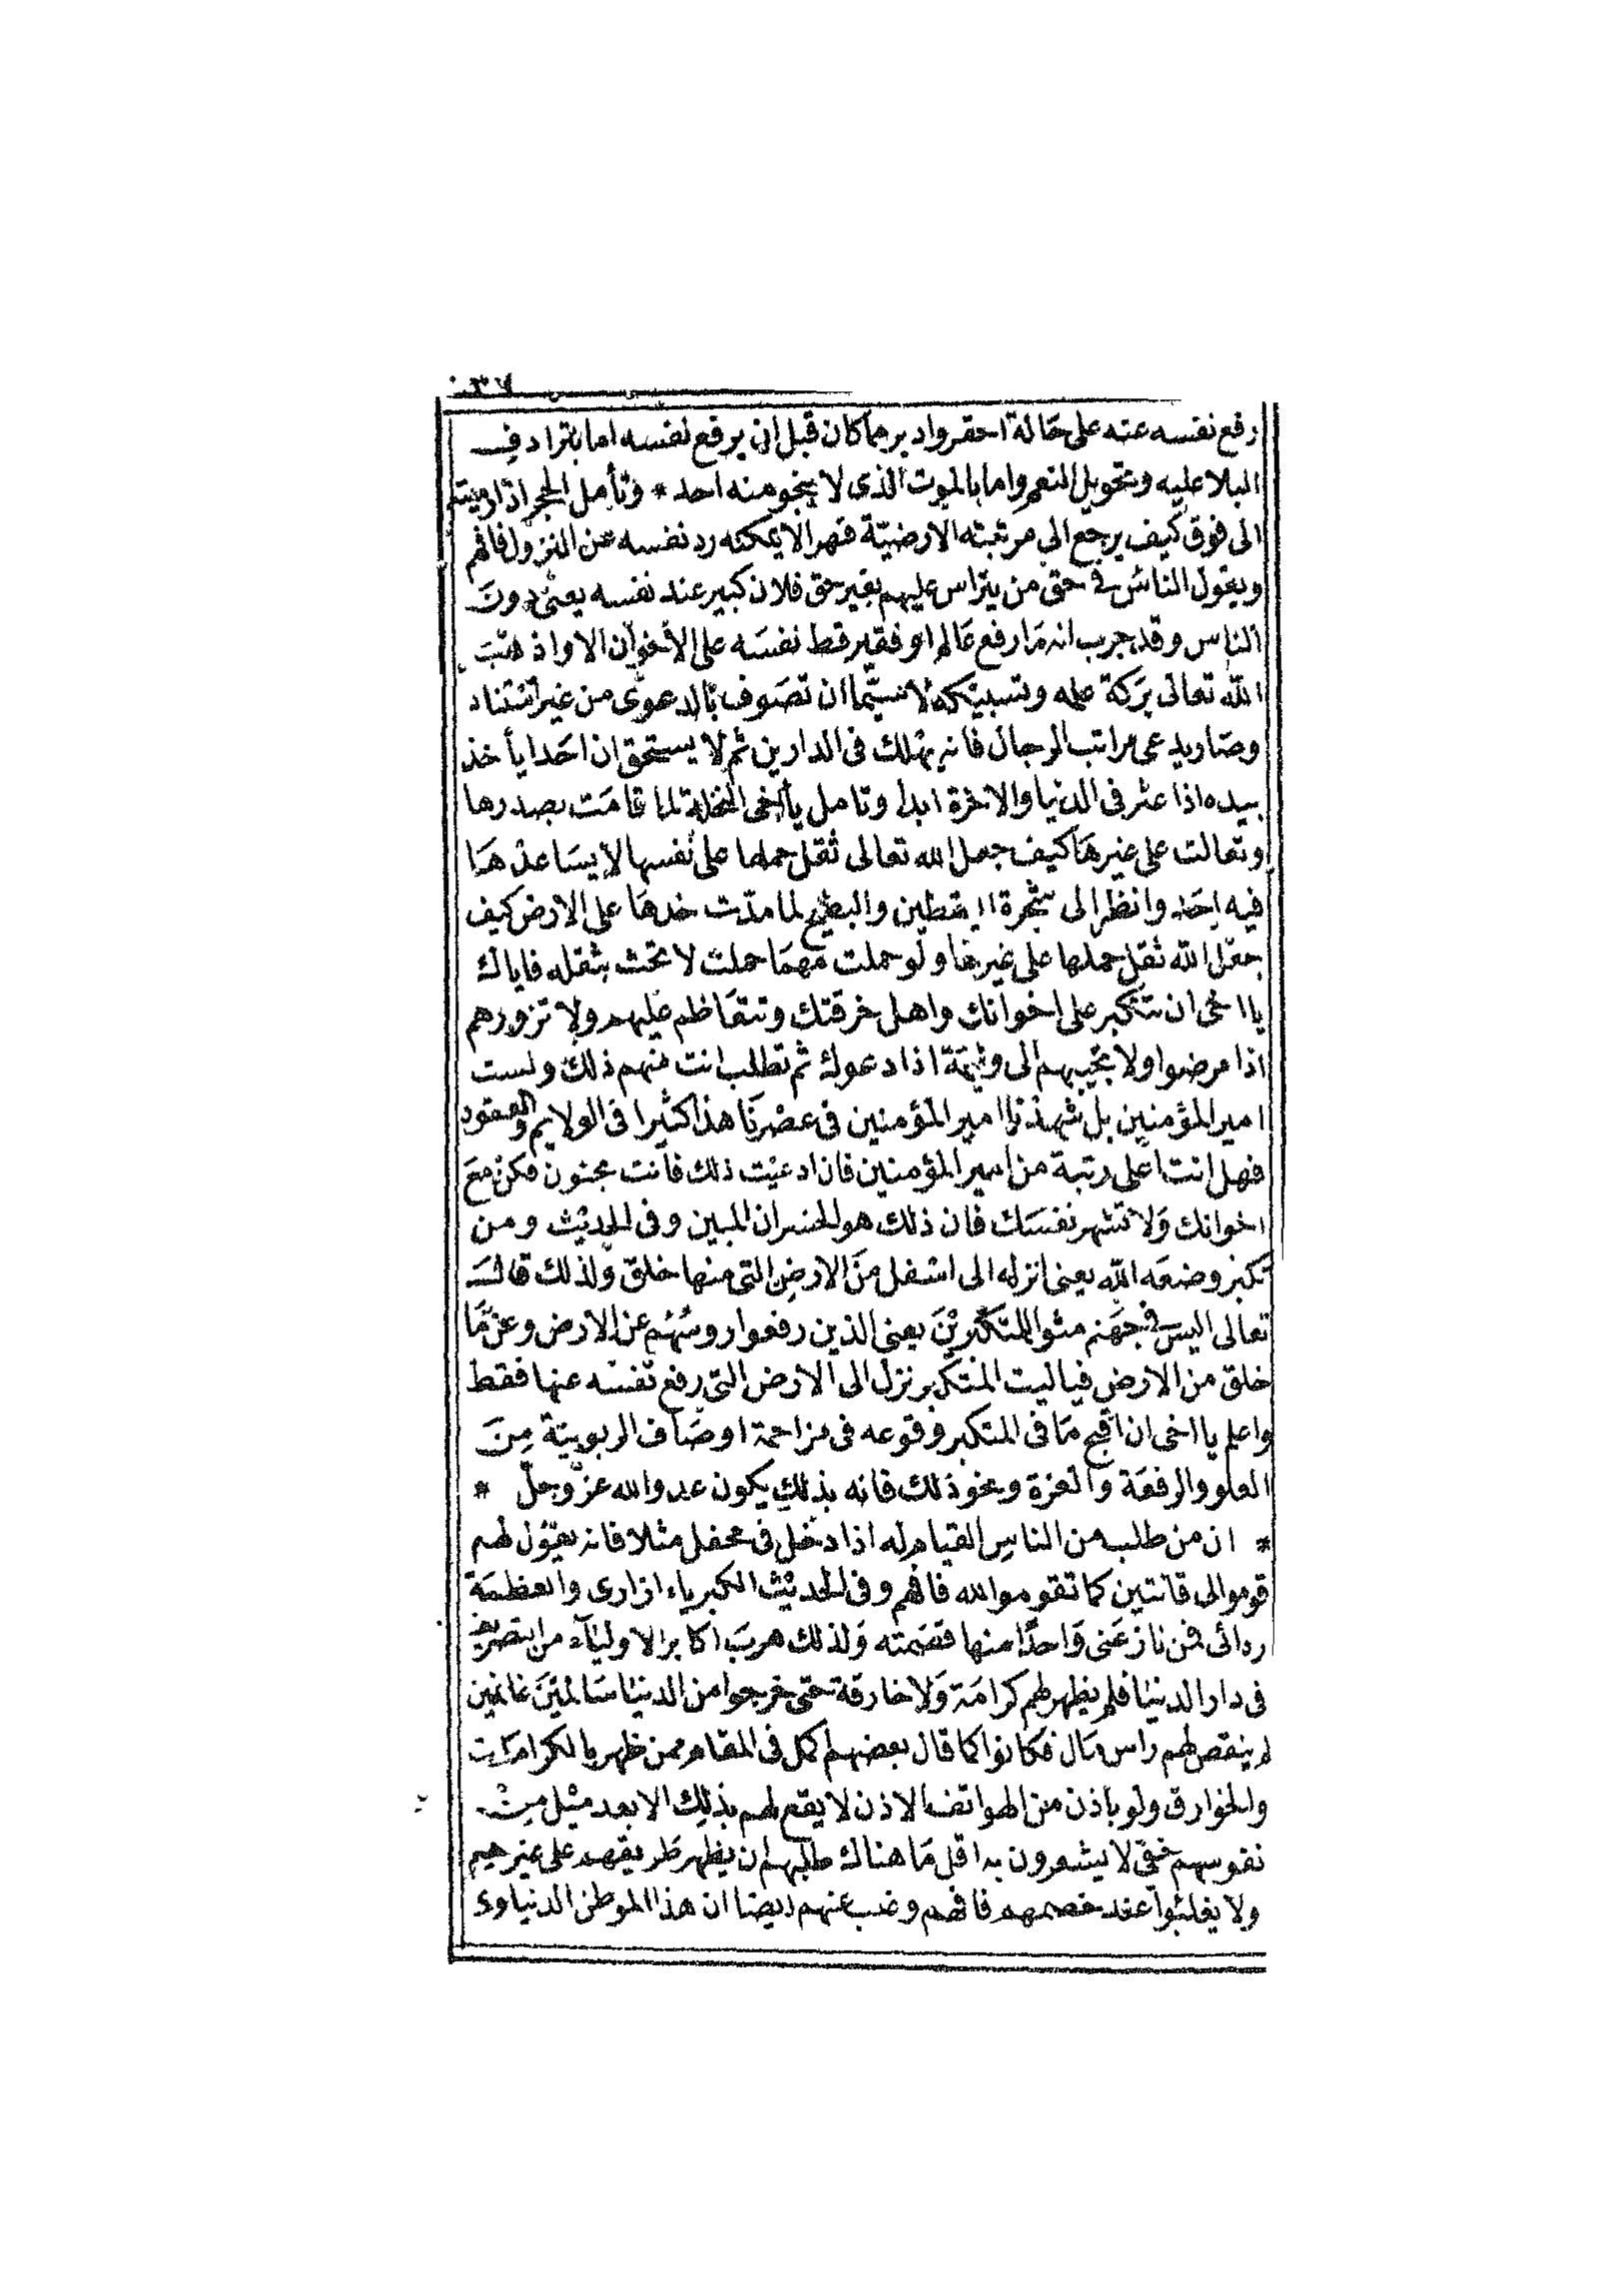 رفع نفسه عنه على حالة احقر وادبر مما كان قبل ان يرفع نفسه اما بترادف
البلا عليه وبتحويل النعم واما بالموت الذى لا ينجو منه احد * وتأمل الحجر اذا رميته
الى فوق كيف يرجع الى مرتبته الارضيّة قهرا لا يمكنه رد نفسه عن النزول فافهم
ويقول الناس فى حق من يتراس عليهم بغير حق فلان كبير عند نفسه يعنى دون
الناس وقد جرب انه ما رفع عالم او فقير قط نفسه على الاخوان الا واذهب
الله تعالى بركة علمه وتسبيكه لا سيّما ان تصوف بالدعوى من غير استناد
وصار يدعى مراتب الرجال فانه يهلك فى الدارين ثم لا يستحق ان احدا يأخذ
بيده اذا عثر فى الدنيا والاخرة ابدا وتامل يا اخى النخلة لما قامت بصدرها
وتعالت على غيرها كيف جعل الله تعالى ثقل حملها على نفسها لا يساعدها
فيه احد وانظر الى شجرة اليقطين والبطيخ لما مدّت خدها على الارض كيف
جعل الله ثقل حملها على غيرها ولو حملت مهما حملت لا تحث بثقله فاياك
يا اخى ان تتكبر على اخوانك واهل خرقتك وتتعاظم عليهم ولا تزورهم
اذا مرضوا ولا تجيبهم الى وليمة اذا دعوك ثم تطلب انت منهم ذلك ولست
امير المؤمنين بل شهدنا امير المؤمنين فى عصرنا هذا كثيرا فى الولايم والعقود
فهل انت اعلى رتبة من امير المؤمنين فان ادعيت ذلك فانت مجنون فكن مع
اخوانك ولا تشهر نفسك فان ذلك هو الخسران المبين وفى الحديث ومن
تكبر وضعه الله يعنى انزله الى اسفل من الارض التى منها خلق ولذلك قال
تعالى اليس فى جهنم مثوا للمتكبرين يعنى الذين رفعوا روسهم عن الارض وعن ما
خلق من الارض فياليت المتكبر نزل الى الارض التى رفع نفسه عنها فقط
واعلم يا اخى ان اقبح ما فى المتكبر وقوعه فى مزاحمة اوصاف الربوبيّة من
العلو والرفعة والعزة ونحو ذلك فانه بذلك يكون عدوالله عزّ وجلّ *
* ان من طلب من الناس القيام له اذا دخل فى محفل مثلا فانه يقول لهم
قوموا لى قانتين كما تقوموا لله فافهم وفى الحديث الكبرياء ازارى والعظمة
ردائى فمن نازعنى واحدا منها قصمته ولذلك هرب اكابر الاولياء من التصريف
فى دار الدنيا فلم يظهر لهم كرامة ولا خارقة حتى خرجوا من الدنيا سالمين غانمين
لم ينقص لهم راس مال فكانوا كما قال بعضهم اكمل فى المقام ممن ظهر بالكرامات
والخوارق ولو باذن من الهواتف الاذن لا يقع لهم بذلك الا بعد ميل من
نفوسهم خفى لا يشعرون به اقل ما هناك طلبهم ان يظهر طريقهم على غيرهم
ولا يغلبوا عند خصمهم فافهم وغب عنهم ايضا ان هذا الموطن الدنياوى